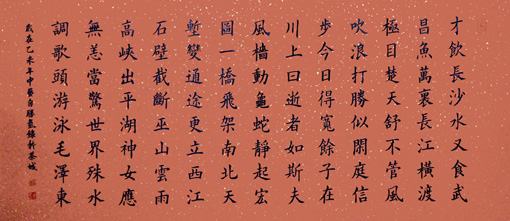 才飲長沙水又食武
昌魚萬裏長江橫渡
極目楚天舒不管風
吹浪打勝似閑庭信
步今日得寬餘子在
川上曰逝者如斯夫
風檣動龜蛇靜起宏
圖一橋飛架南北天
塹變通途更立西江
石壁截斷巫山雲雨
高峽出平湖神女應
無恙當驚世界殊水
調歌頭游泳毛澤東
歲在乙未年